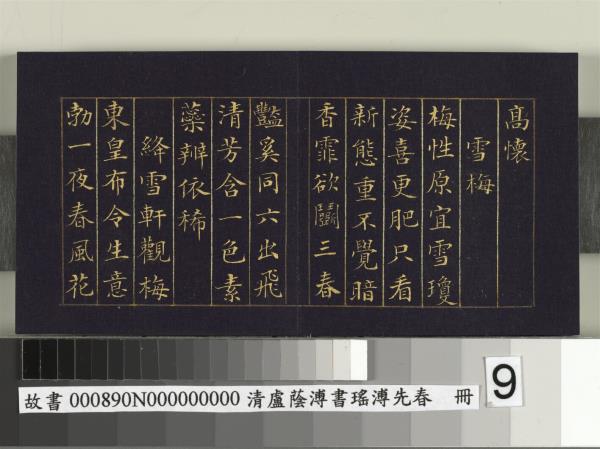 高懷
雪梅
梅性原宜雪瓊
姿喜更肥只看
新態重不覺暗
香霏欲鬭三春
豔奚同六出飛
清芳含一色素
蘂辨依稀
絳雪軒觀梅
東皇布令生意
勃一夜春風花
故書 000890N000000000 清盧蔭溥書瑤溥先春 冊
9